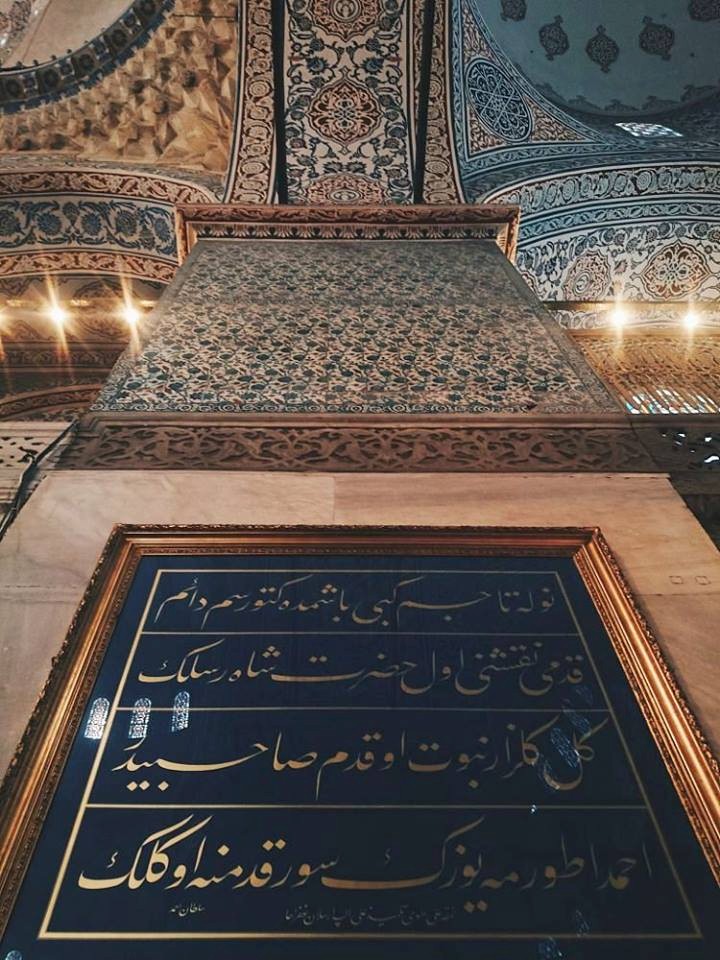 نوله تاجم كبی باشمده كتورسم دائم
قدمی نقشنی اول حضرت شاه رسلك
كل كلزار نبوت او قدم صاحبیدر
احمدا طورمه یوزك سور قدمنه او كلك
سلطان احمد